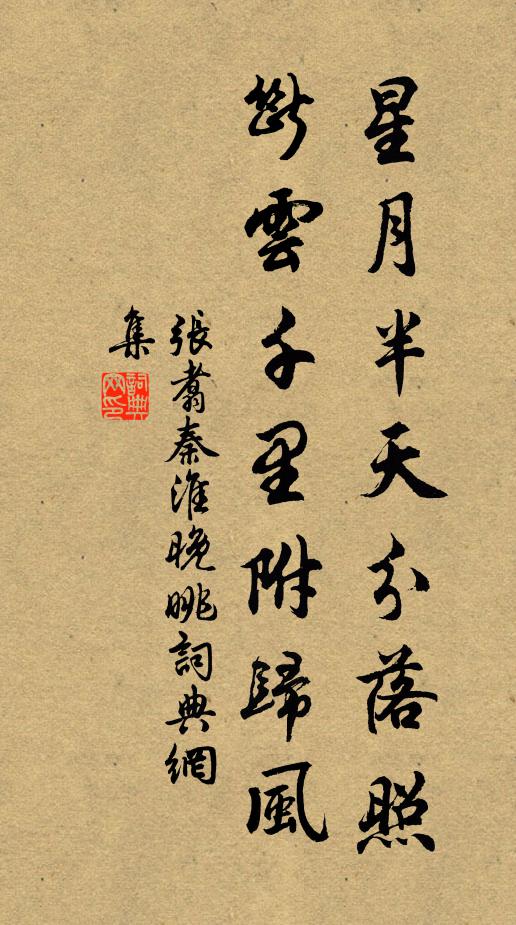 星月半天分落照
斷雲千里附歸風
張翥秦淮晚眺詞典網
集
詞典網印